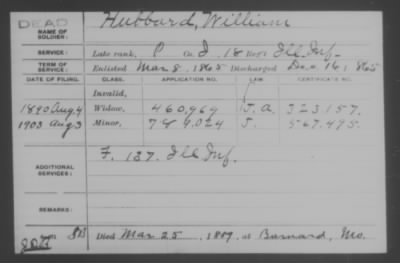 DEAD
NAME OF SOLDIER: Hubbard, William
SERVICE: Late rank, P Co. I, 18 Reg't Ill Inf.
TERM OF SERVICE: Enlisted Mar 8, 1865 Discharged Dec 16, 1865
DATE OF FILING. CLASS. APPLICATION NO. LAW. CERTIFICATE NO.
Invalid,
1890 Aug 4 Widow, 460,969 J.a. 323157.
1903 Aug 3 Minor, 789,024 J. 567.495.
ADDITIONAL SERVICES: F. 137. Ill Inf.
REMARKS:
Died Mar 25, 1889, at Barnard, Mo.